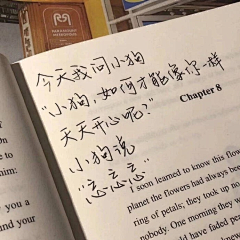 今天我问小狗
"小狗,如何才能像你一样
天天开心呢?"
小狗说
"忘忘忘"
Chapter 8
I soon learned to know this flow
planet the flowers had always bee
ring of petals; they took up no
nobody. One morning they w
would have faded pe
him:
you a
und your